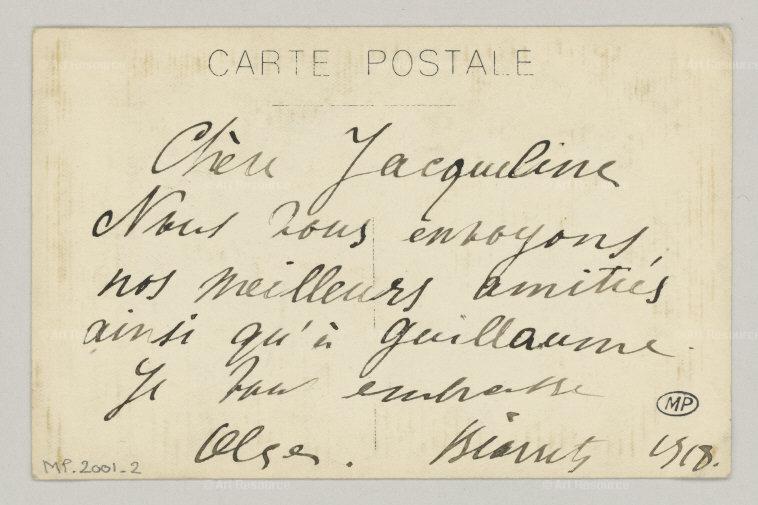 CARTE POSTALE
Chère Jacqueline
Nous vous envoyons
nos meilleurs amitiés
ainsi qu'à Guillaume.
Je vous embrasse
Olga. Biarritz 1918.
MP
MP.2001-2
Art Resource